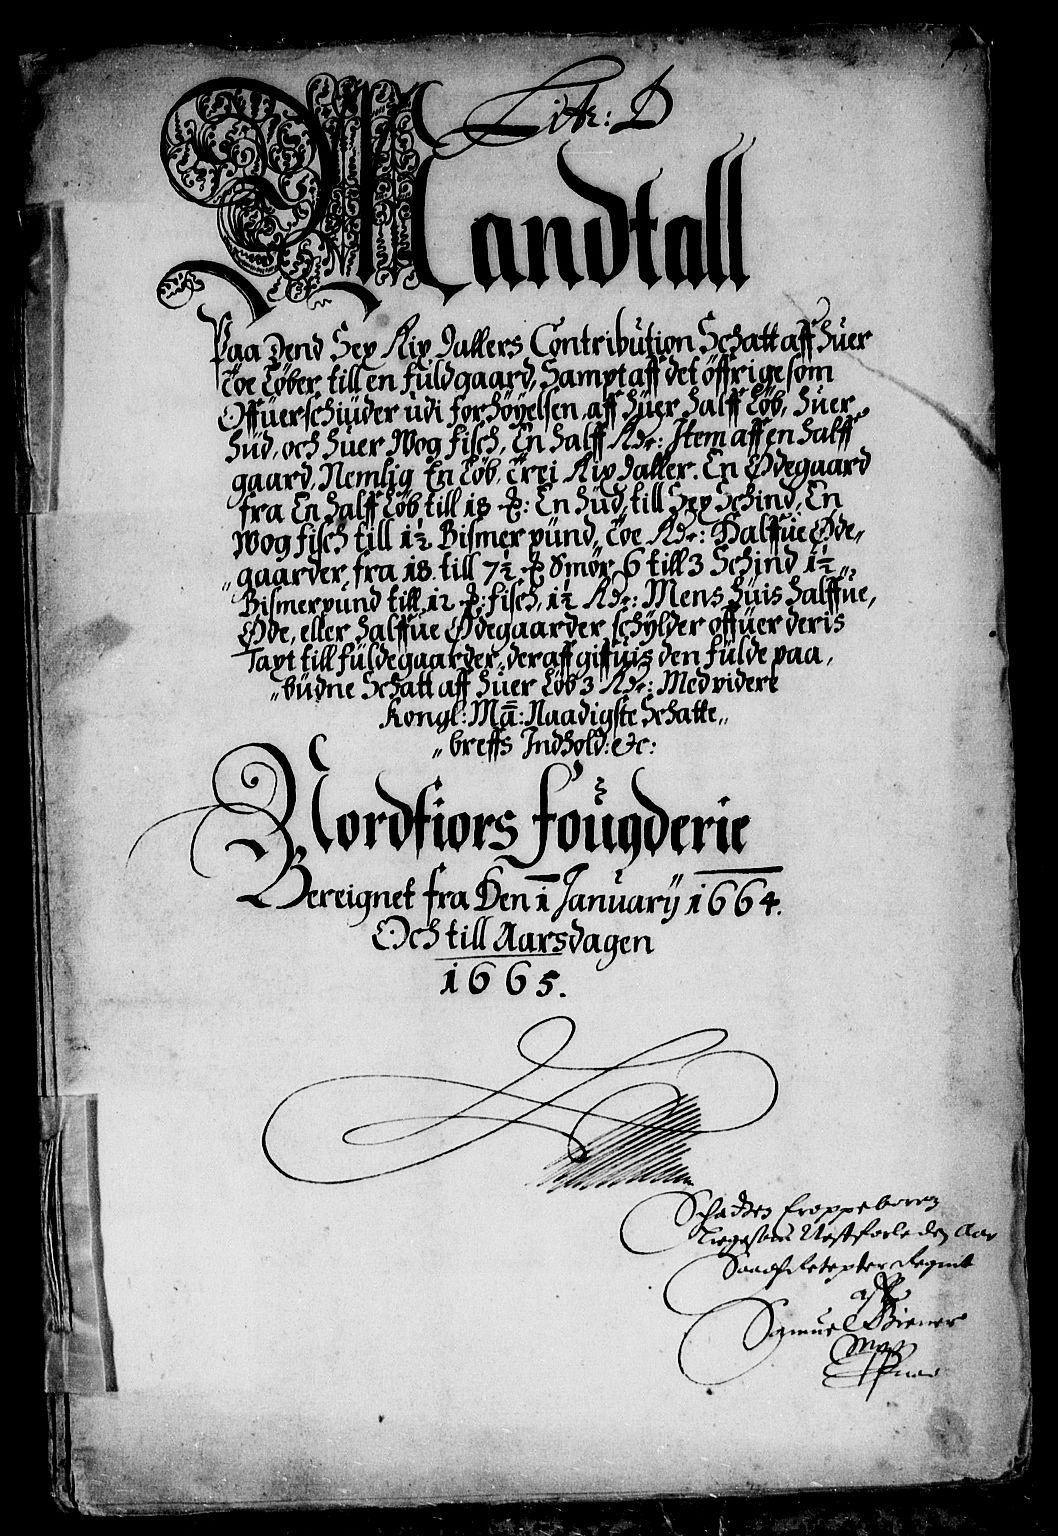 Litr: D
Mandtall
Paa Dend Sex Rix Dallers Contribution Schatt aff huer
Toe Løber till en fuldgaard, Sampt aff det öffrige som
Offuerschiuder udi forhöyelsen, aff huer halff Løb, huer
hud, och huer Wog fisch, En halff Rdr: Item aff en halff
gaard, Nemlig En Løb, Trei Rix Daller. En Ødegaard
fra En halff Løb till 18 ℔: En hud, till Sex Schind, En
Wog fisch till 1½ Bismer pund, Toe Rdr: Halffue Øde„
„gaarder, fra 18. till 7½ ℔ Smør, 6 till 3 Schind 1½
Bismerpund till 12 ℔: fisch, 1½ Rdr: Mens huis halffue,
Øde, eller halffue Ødegaarder schylder offuer deris
Taxt till fuldegaarder, der aff giffuis den fulde paa,
„budne Schatt aff huer Løb 3 Rdr: Med videre
Kongl: Ma: Naadigste Schatte„
„breffs Indhold: etc:
Nordfiors fougderie
Bereignet fra Den 1 Januarij 1664.
Och till Aarsdagen
1665.
Samuel